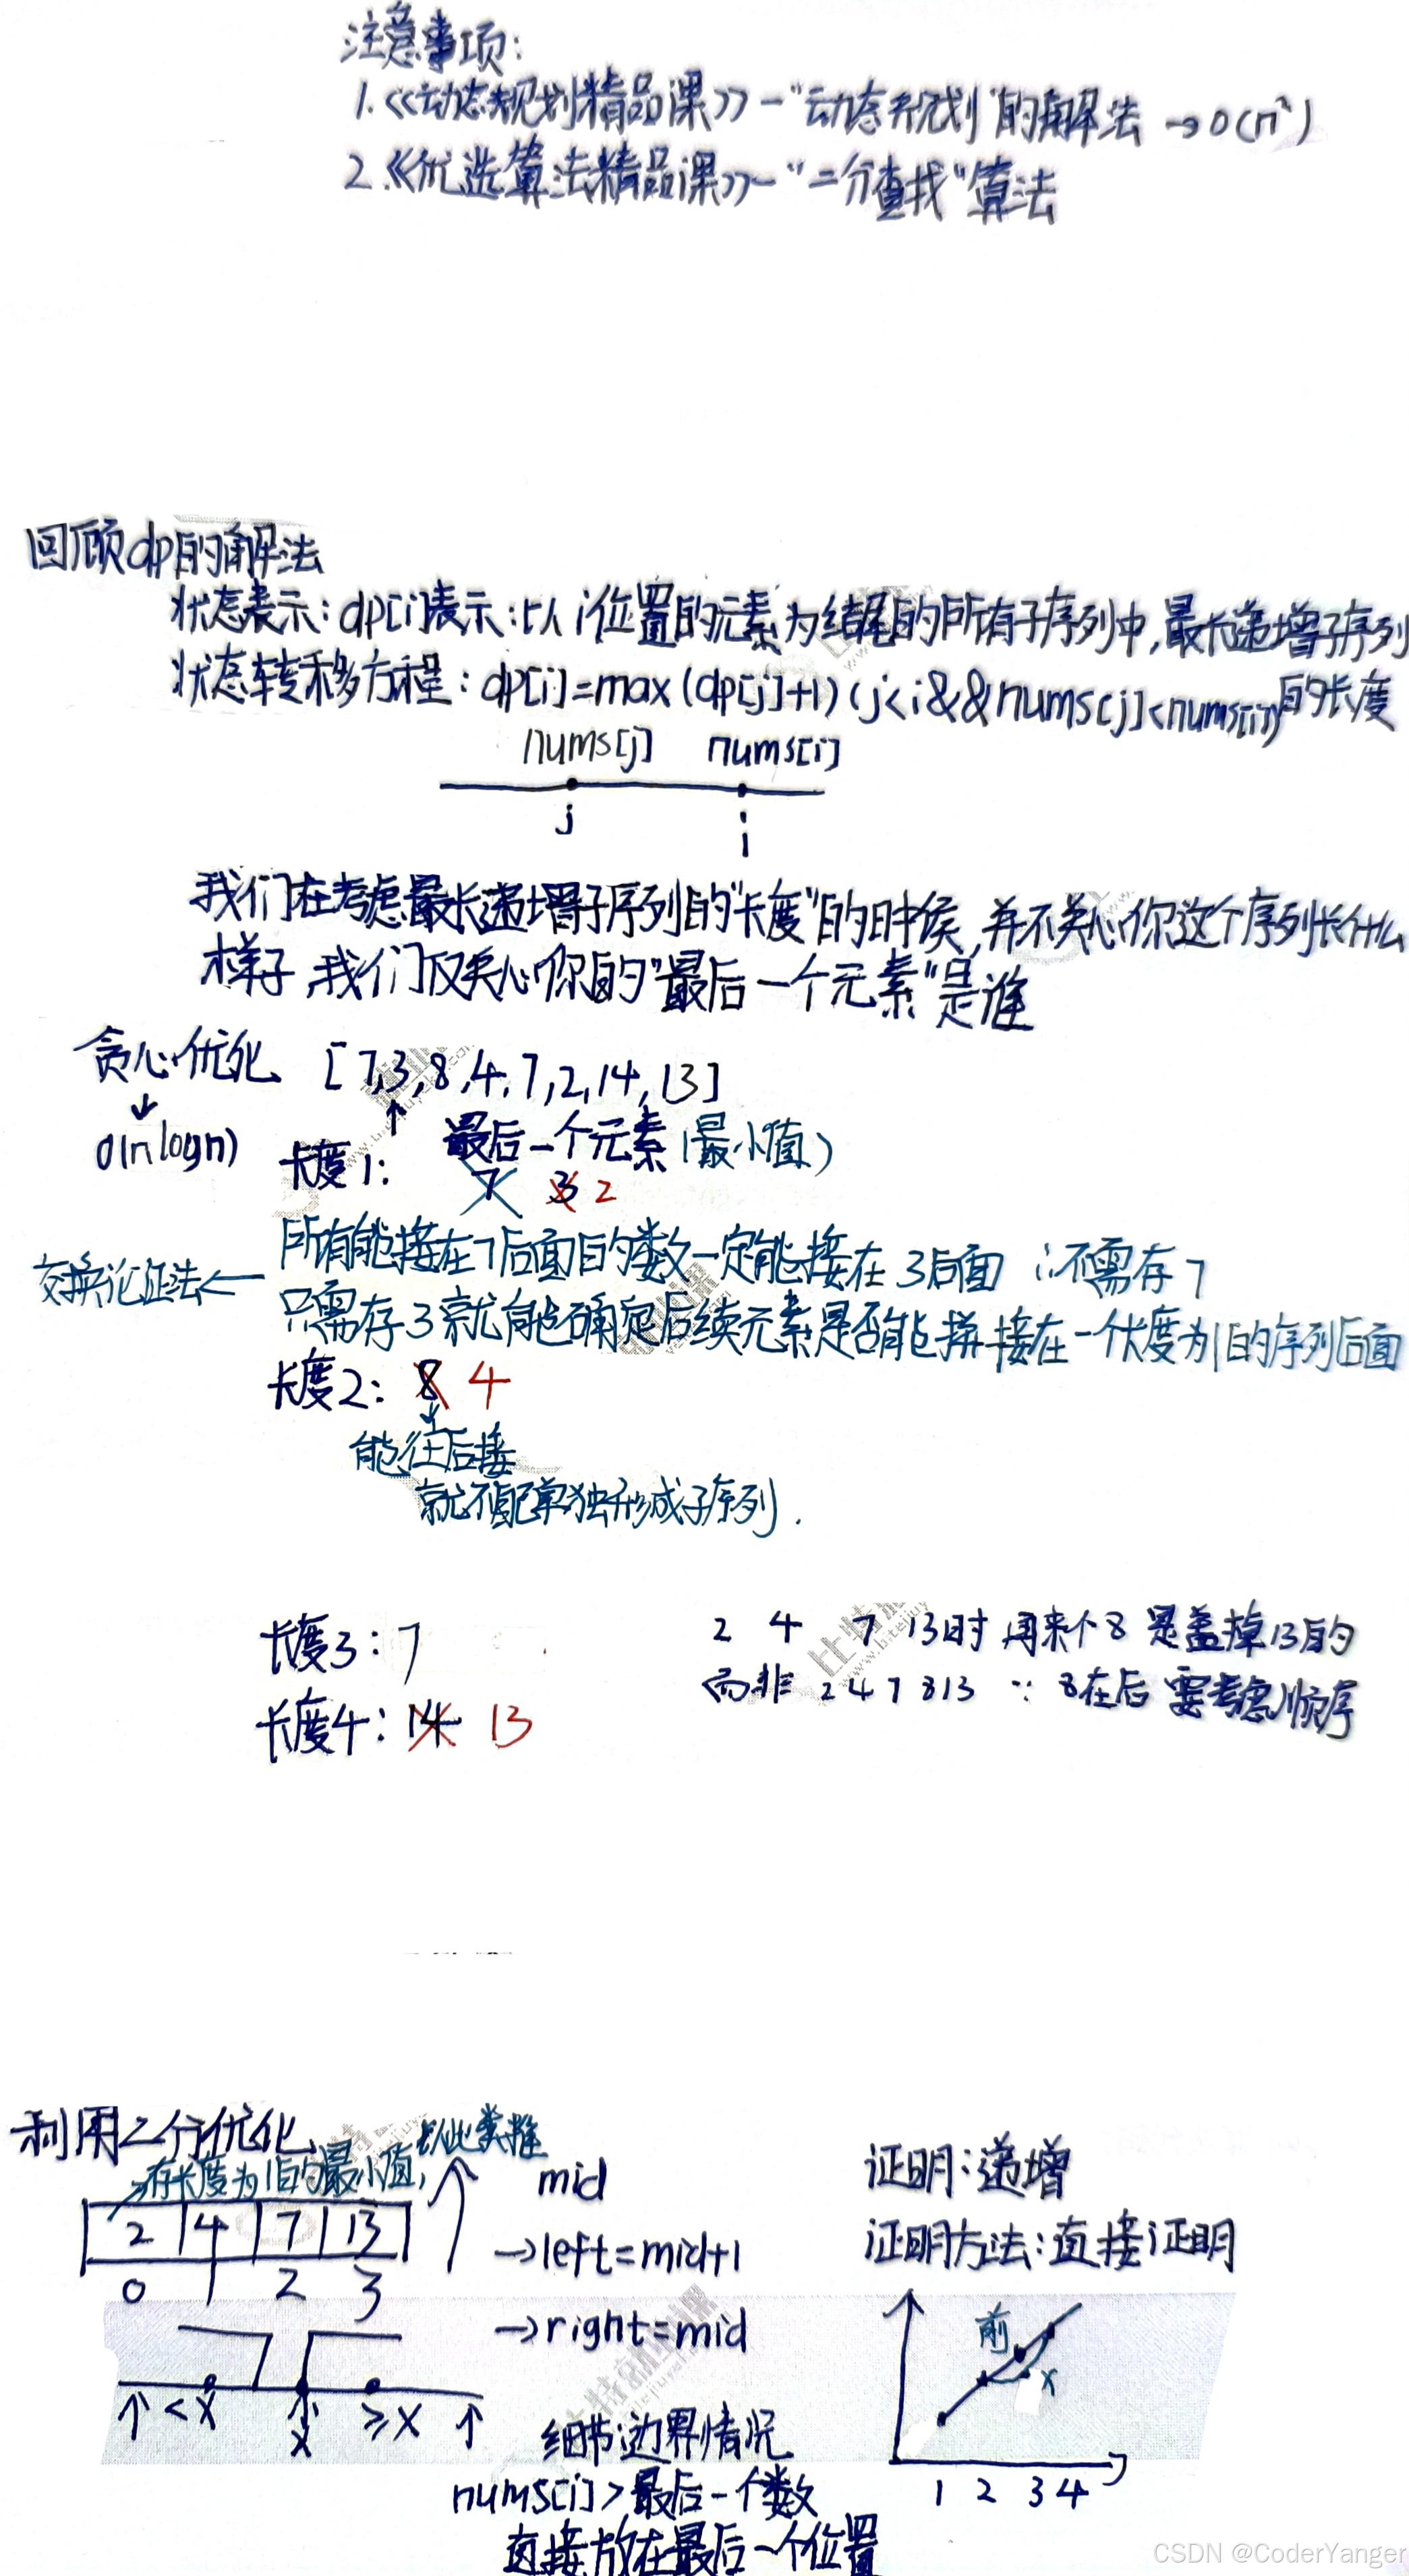 注意事项:
1.《动态规划精品课》—"动态规划"的解法 →O(n²)
2.《优选算法精品课》—"二分查找"算法
回顾dp的解法
状态表示:dp[i]表示:以i位置的元素为结尾的所有子序列中,最长递增子序列
的长度
状态转移方程:dp[i]=max(dp[j]+1)(j<i&&nums[j]<nums[i])
nums[j] nums[i]
j i
我们在考虑最长递增子序列的"长度"的时候,并不关心你这个序列长什么
样子,我们仅关心你的"最后一个元素"是谁
贪心优化 [7,3,8,4,7,2,14,13]
↓ ↑
O(nlogn)
最后一个元素(最小值)
长度1: 7 3 2
所有能接在7后面的数一定能接在3后面 ∴不需存7
交换论证法←
只需存3就能确定后续元素是否能拼接在一个长度为1的序列后面
长度2: 8 4
能往后接
就不配单独形成子序列.
长度3:7
长度4:14 13
2 4 7 13时 再来个8 是盖掉13的
而非 2 4 7 8 13 ∵ 8在后 要考虑顺序
利用二分优化
→存长度为1的最小值,以此类推
2 4 7 13
0 1 2 3
mid
→left=mid+1
→right=mid
↑ <x x ≥x ↑
细节:边界情况
nums[i]>最后一个数
直接放在最后一个位置
证明:递增
证明方法:直接证明
前
x
1 2 3 4
CSDN @CoderYanger